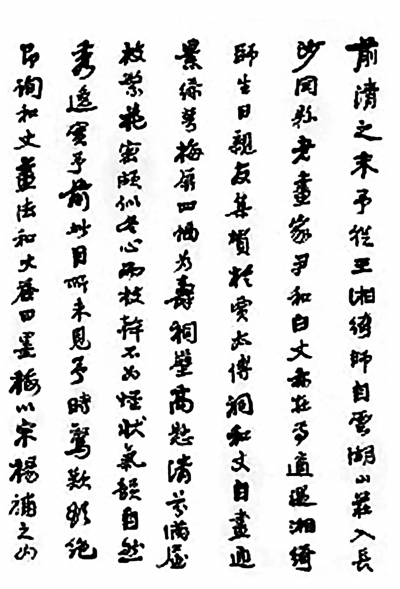 前清之末予從王湘綺師自雲湖山莊入長
沙同縣老畫家尹和白丈亦在焉直還湘綺
師生日親友集賀於賈太傅祠和丈自畫通
景綠萼梅花四幅为壽祠壁高懸清芬滿座
枝繁花密頗似冬心而枝榦不为怪狀氣韻自然
秀逸實予前此目所未見予時驚歎欲絕
即詢和丈畫法和丈答四墨梅以宋楊補之為